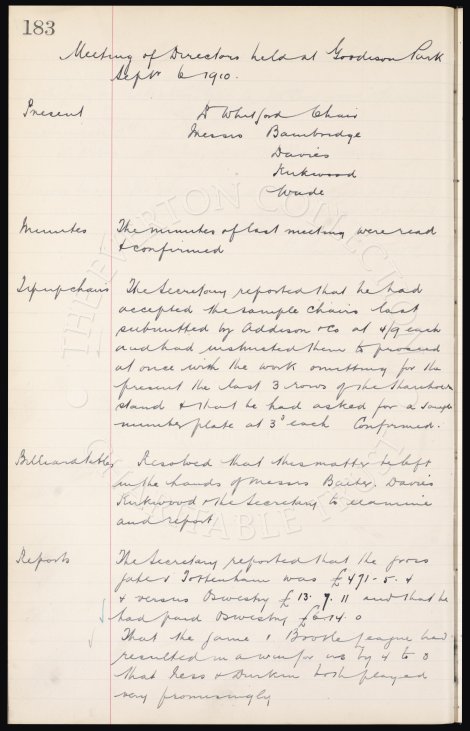 183
Meeting of Directors held at Goodison Park
Septr 6 1910.
Present Dr Whitford Chair
Messrs Bainbridge
Davies
Kirkwood
Wade
Minutes The minutes of last meeting were read
& confirmed
Tip up chairs The Secretary reported that he had
accepted the sample chairs last
submitted by Addison & Co at 4/9 each
and had instructed them to proceed
at once with the work omitting for the
present the last 3 rows of the
stand & that he had asked for a sample
number plate at 3d each Confirmed.
Billiard tables Resolved that this matter be left
in the hands of Messrs Baxter, Davies
Kirkwood & the Secretary to examine
and report
Reports The Secretary reported that the gross
gate v Tottenham was £471-5-4
& versus Oswestry £13.7.11 and that he
had paid Oswestry £6.14.0
That the game v Bootle League had
resulted in a win for us by 4 to 0
that & Durkin both played
very promisingly
THE EVERTON COLLECTION
CHARITABLE TRUST